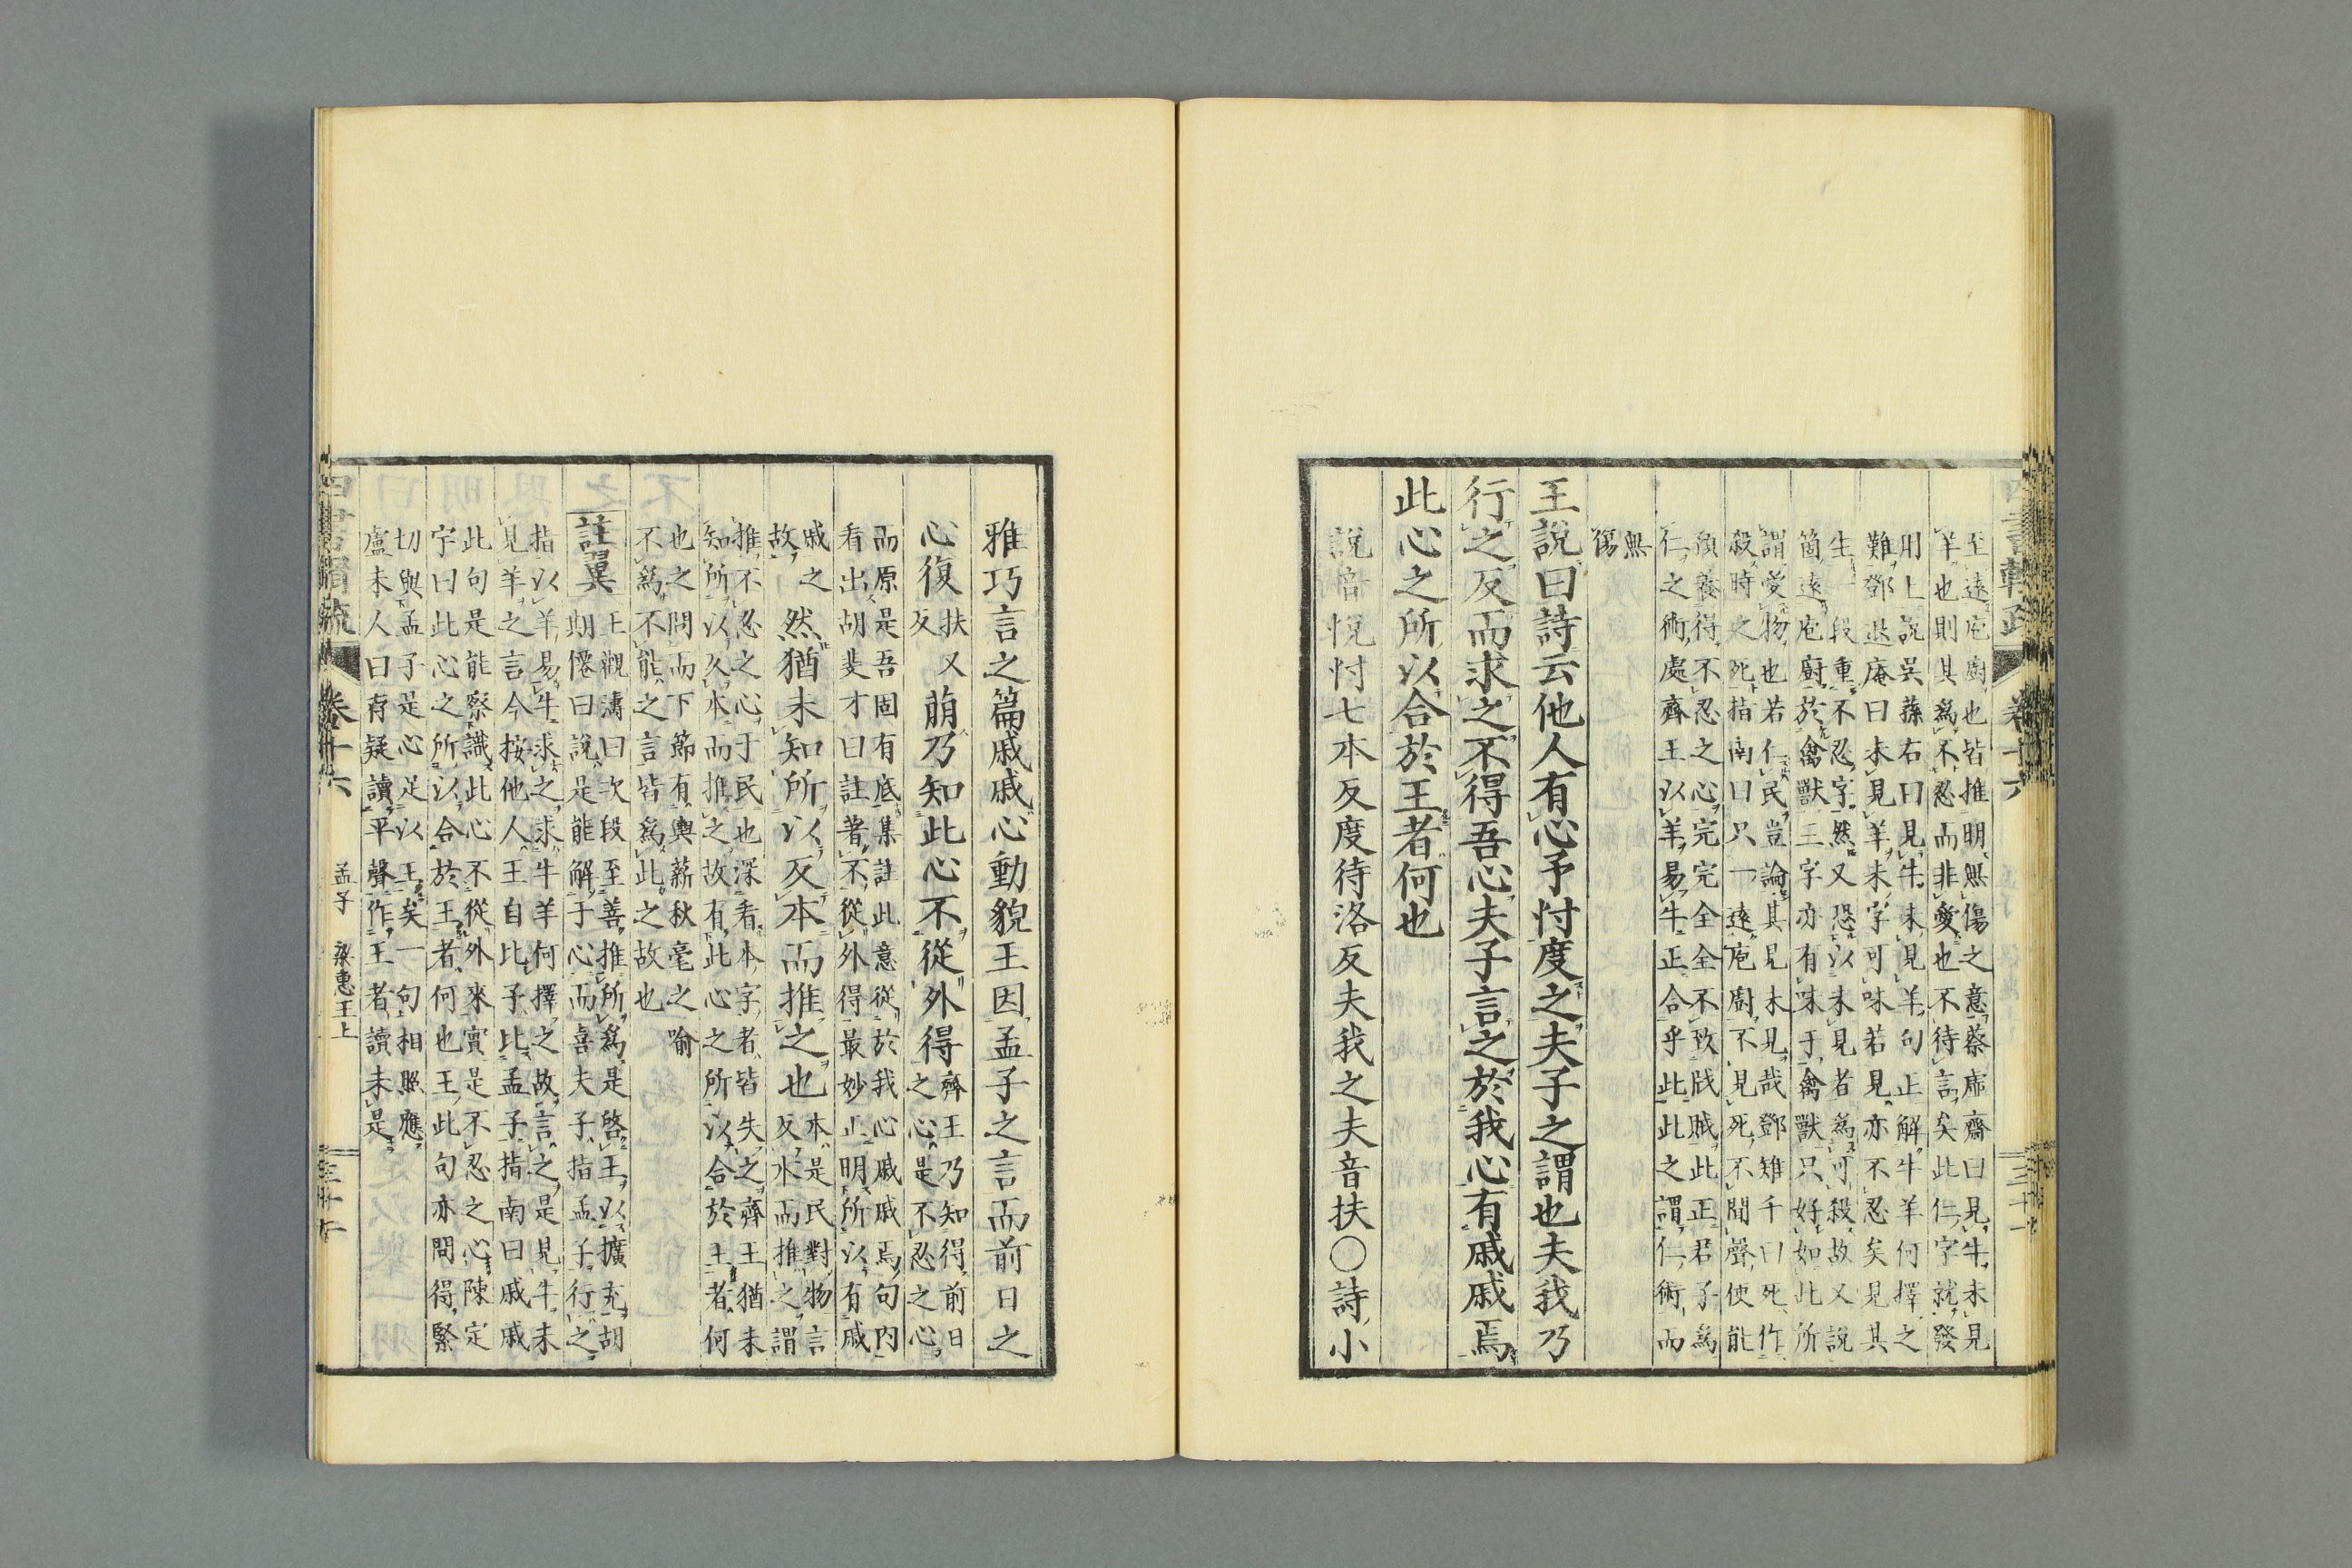 至遠庖廚也皆推明無傷之意蔡虛齋曰見牛未見
羊也則其爲不忍而非愛也不待言矣此仁字就發
用上說吳蓀右曰見牛未見羊句正解牛羊何擇之
難鄧退庵曰未見羊未字可味若見亦不忍矣見其
生一段重不忍字然又恐以未見者爲可殺故又說
箇遠庖廚於禽獸三字亦有味于禽獸只好如此所
謂愛物也若仁民豈論其見未見哉鄧雉千曰死作
殺時之死指南曰只一遠庖廚不見死不聞聲使能
預養得不忍之心完完全全不致戕賊此正君子爲
仁之術處齊王以羊易牛正合乎此此之謂仁術而
無
傷
王說曰詩云他人有心予忖度之夫子之謂也夫我乃
行之反而求之不得吾心夫子言之於我心有戚戚焉
此心之所以合於王者何也
說音悅忖七本反度待洛反夫我之夫音扶○詩小
雅巧言之篇戚戚心動貌王因孟子之言而前日之
心復扶又反萌乃知此心不從外得齊王乃知得前日之心是不忍之心
而原是吾固有底集註此意從於我心戚戚焉句內
看出胡斐才曰註著不從外得最妙正明所以有戚
戚之故然猶未知所以反本而推之也本是民對物言反本而推之謂
推不忍之心于民也深看本字者皆失之齊王猶未
知所以久本而推之故有此心之所以合於王者何
也之問而下節有輿薪秋毫之喻
不爲不能之言皆爲此之故也
註翼王觀濤曰次段至善推所爲是啓王以擴充胡
期僊曰說是能解于心而喜夫子指孟子行之
指以羊易牛求之求牛羊何擇之故言之是見牛未
見羊之言今按他人王自比予比孟子指南曰戚戚
此句是能察識此心不從外來實是不忍之心陳定
宇曰此心之所以合於王者何也王此句亦問得緊
切與孟子是心足以王矣一句相照應
盧未人曰存疑讀平聲作王者讀未是
卷十六
孟子 梁惠王上